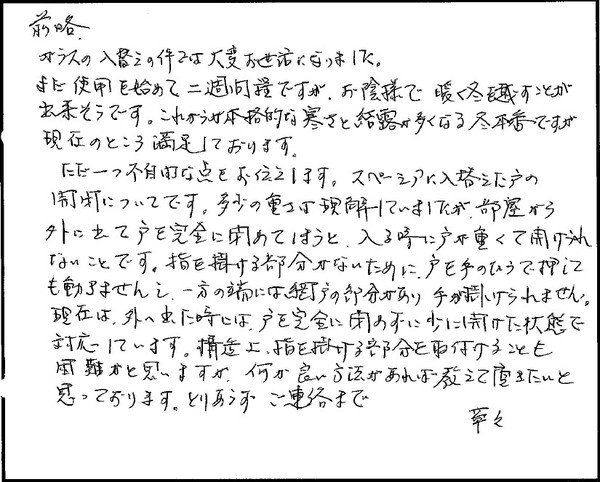 前略
ガラスの入替えの件では大変お世話になりました。
まだ使用を始めて二週間程ですが、お陰様で暖く冬を越すことが
出来そうです。これからが本格的な寒さと結露が多くなる冬本番ですが
現在のところ満足しております。
ただ一つ不自由な点をお伝えします。スペーシアに入替えた戸の
開閉についてです。多少の重さは理解していましたが、部屋から
外に出て戸を完全に閉めてしまうと、入る時に戸が重くて開けられ
ないことです。指を掛ける部分がないために、戸を手のひらで押して
も動きませんし、一方の端には網戸の部分があり手が掛けられません。
現在は、外へ出た時には、戸を完全に閉めずに少しに開けた状態で
対応しています。構造上、指を掛ける部分を取付けることも
困難かと思いますが、何か良い方法があれば教えて頂きたいと
思っております。とりあえず ご連絡まで
草々